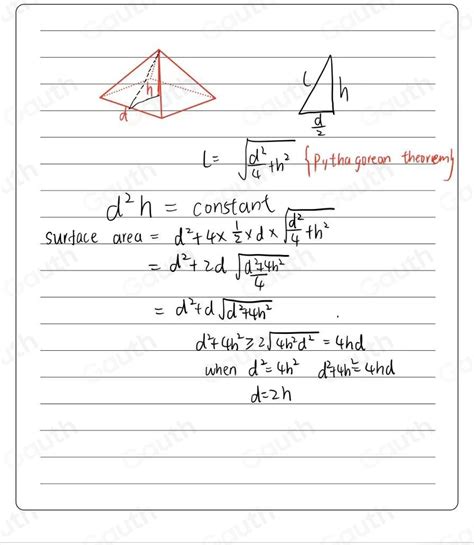 h
d
L
h
d/2
L = √(d²/4 + h²) {Pythagorean theorem}
d²h = constant
surface area = d² + 4 × 1/2 × d × √(d²/4 + h²)
= d² + 2d √((d²+4h²)/4)
= d² + d √(d²+4h²)
d² + 4h² ≥ 2√(4h²d²) = 4hd
when d² = 4h² d²+4h² = 4hd
d = 2h
Gauth